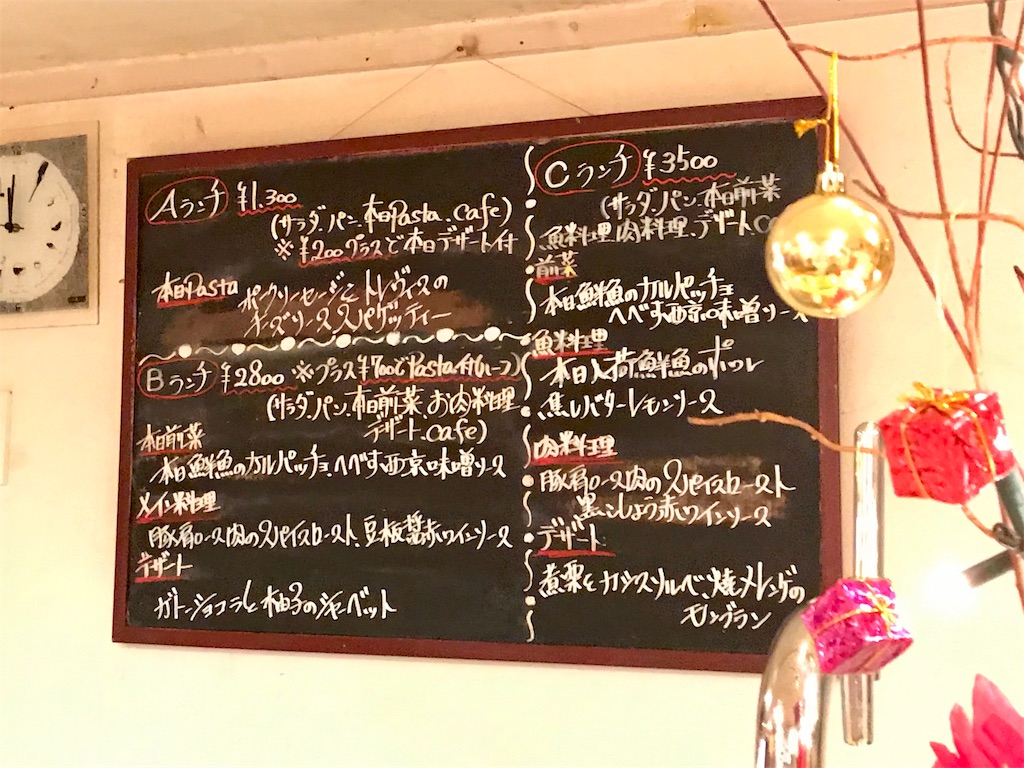 Aランチ ¥1.300
(サラダ、パン、本日Pasta、Cafe)
※ ¥200プラスで本日デザート付
本日Pasta ポークソーセージと トレヴィスの
チーズソース スパゲッティー
Bランチ ¥2800 ※プラス¥700でPasta付(ハーフ)
(サラダ、パン、本日前菜、お肉料理
デザート、Cafe)
本日前菜
本日鮮魚のカルパッチョ、へべす、西京味噌ソース
メイン料理
豚肩ロース肉のスパイスロースト、豆板醤赤ワインソース
デザート
ガトーショコラと柚子のシャーベット
Cランチ ¥3500
(サラダ、パン、本日前菜
魚料理、肉料理、デザート、
前菜
本日鮮魚のカルパッチョ
へべす西京味噌ソース
魚料理
本日入荷鮮魚のポワレ
焦しバターレモンソース
肉料理
豚肩ロース肉のスパイスロースト
黒こしょう赤ワインソース
デザート
煮栗とカシスソルベ、焼メレンゲの
モンブラン